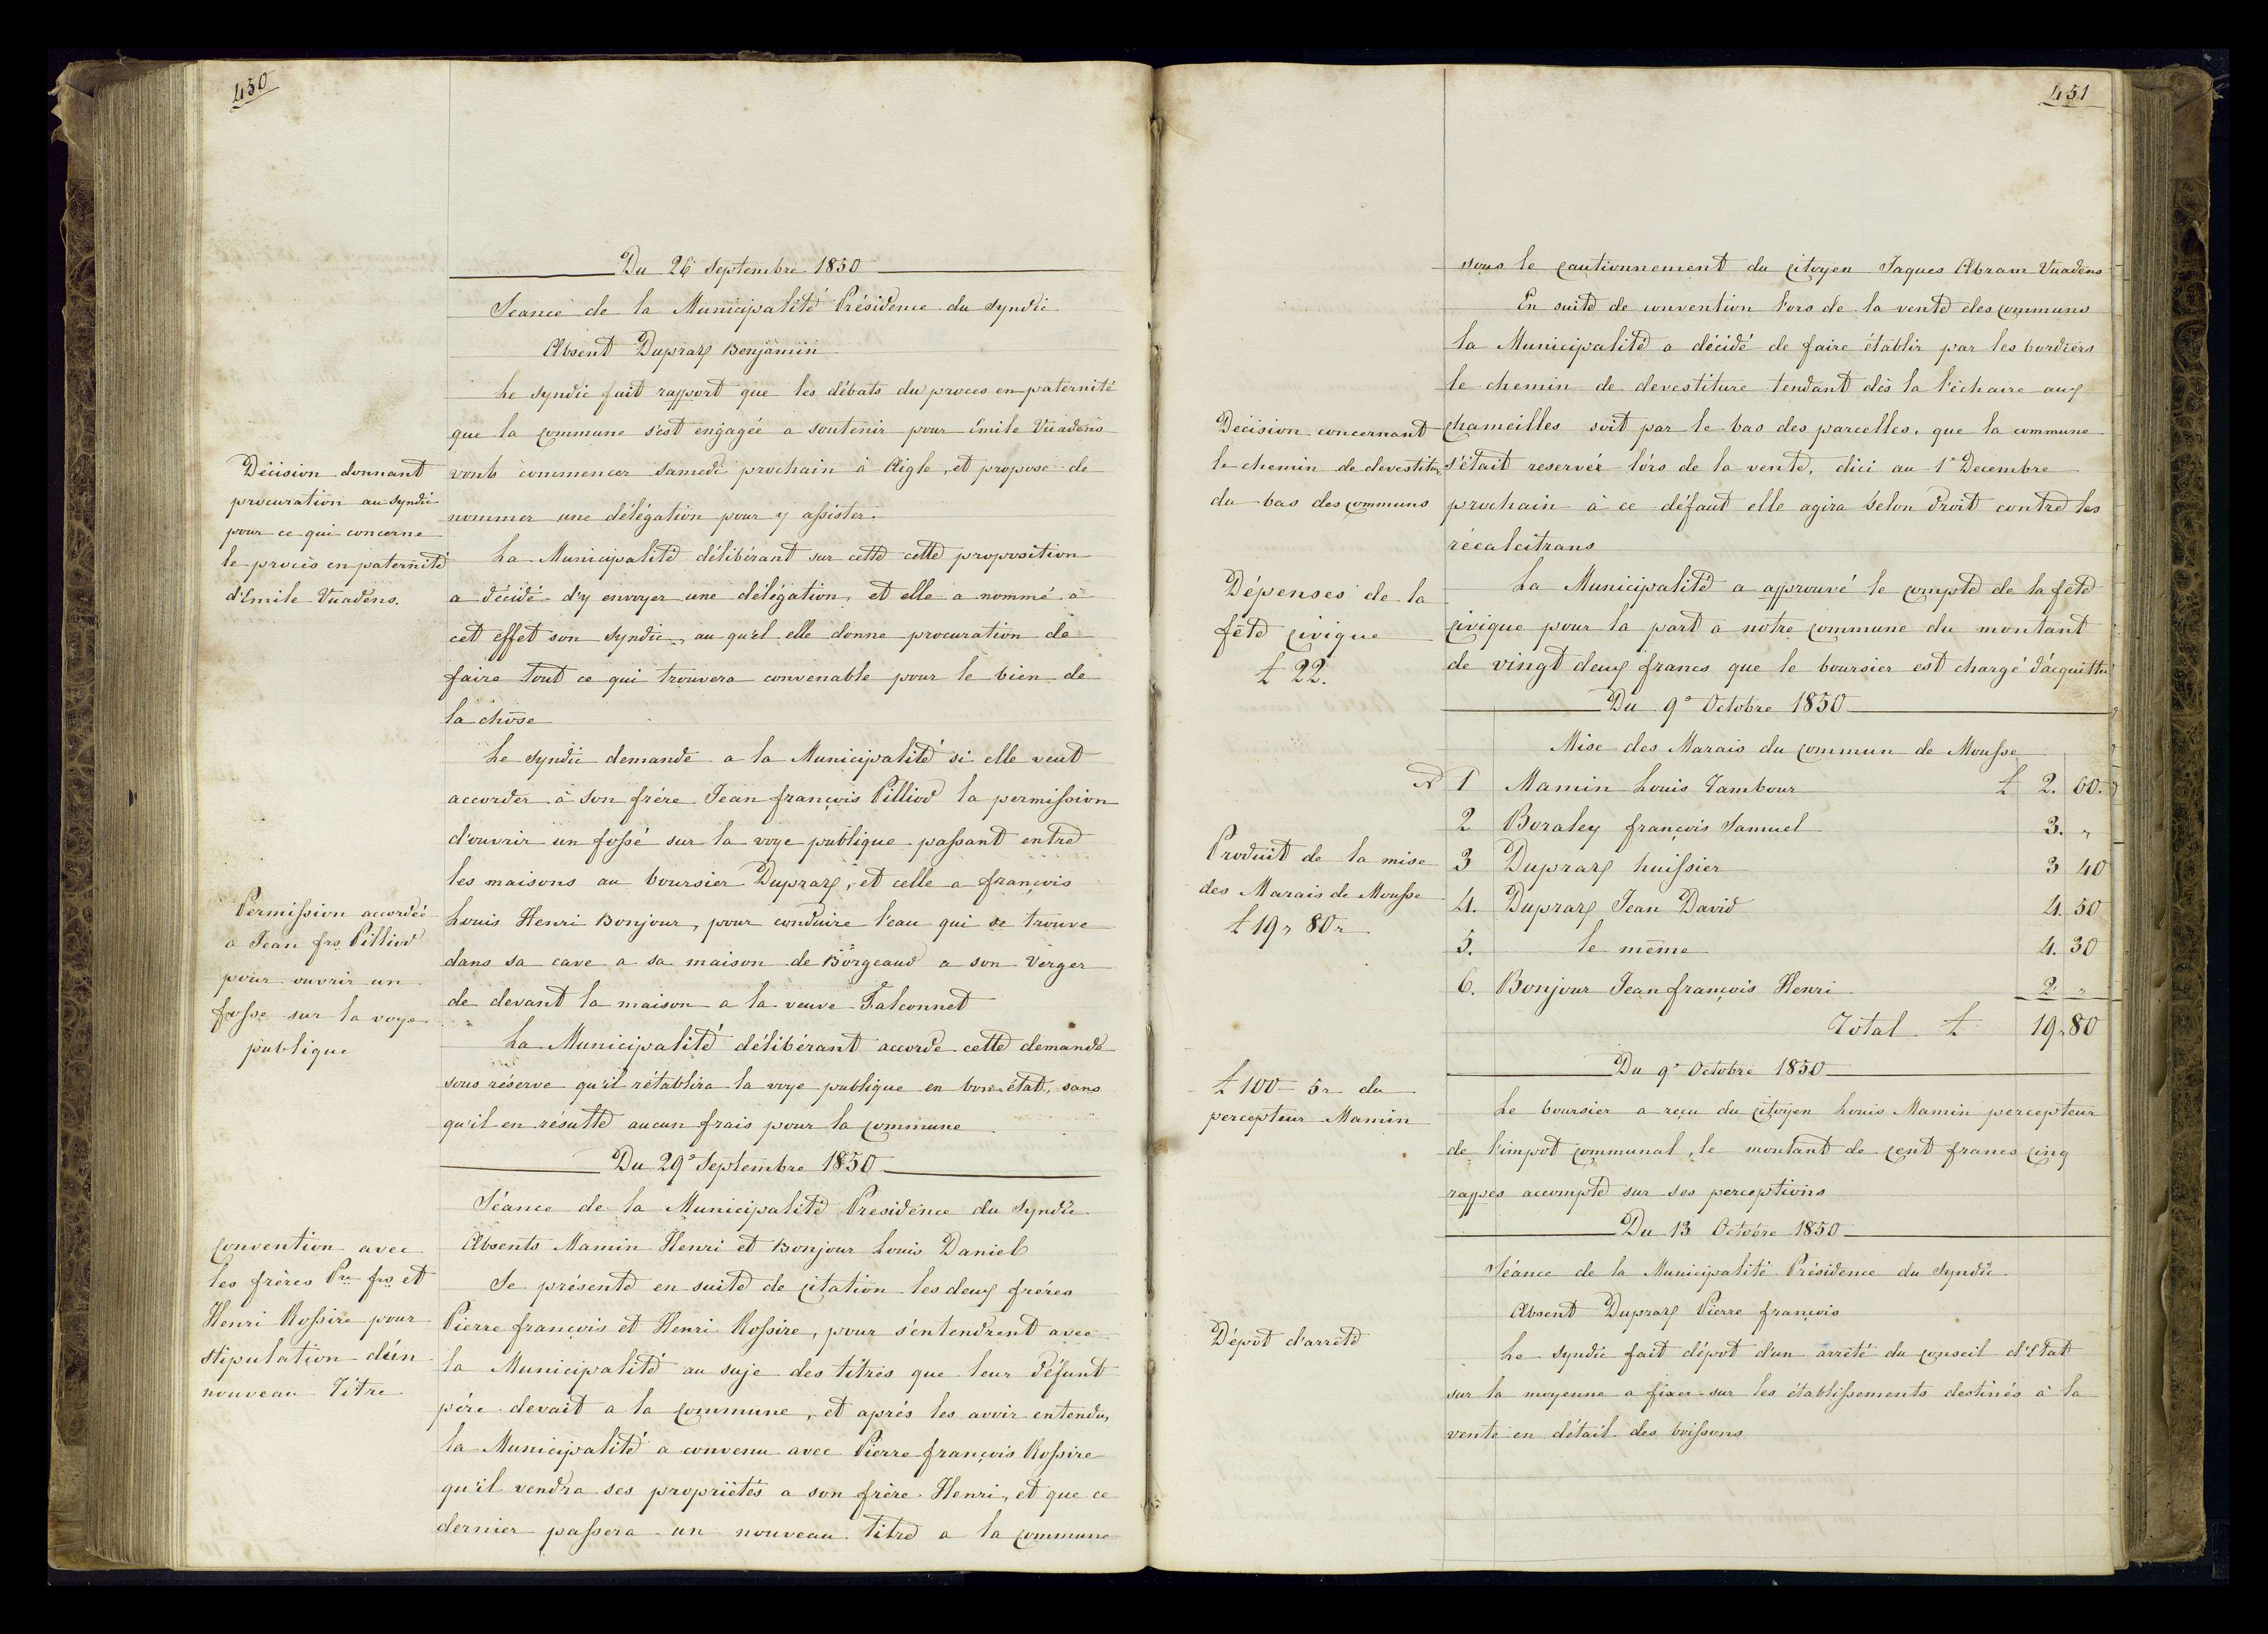 450
Du 26 Septembre 1850
Séance de la Municipalité Présidence du Syndic
Absent Dupraz Benjamin
Le Syndic fait rapport que les débats du proces en paternité
que la commune s'est engagée a soutenir pour Émile Vuadens
vont commencer samedi prochain à Aigle, et propose de
nommer une délégation pour y assister.
La Municipalité délibérant sur cette cette proposition
a décidé d'y envoyer une délégation, et elle a nommé a
cet effet son Syndic, au qu'el elle donne procuration de
faire tout ce qui trouvera convenable pour le bien de
la chose
Décision donnant
procuration au Syndic
pour ce qui concerne
le procès en paternité
d'Emile Vuadens.
Le Syndic demande a la Municipalité si elle veut
accorder à son frére Jean françois Pilliod la permission
d'ouvrir un fossé sur la voye publique passant entre
les maisons au boursier Dupraz, et celle a françois
Louis Henri Bonjour, pour conduire l'eau qui se trouve
dans sa cave a sa maison de Borgeaud a son Verger
de devant la maison a la veuve Falconnet
La Municipalité délibérant accorde cette demande
sous réserve qu'il rétablira la voye publique en bon état, sans
qu'il en résulte aucun frais pour la commune
Permission accordée
a Jean frs Pilliod
pour ouvrir un
fosse sur la voye
publique
Du 29e Septembre 1850
Séance de la Municipalité Presidence du Syndic
Absents Mamin Henri et Bonjour Louis Daniel
Se présente en suite de citation les deux fréres
Pierre françois et Henri Rossire, pour s'entendrent avec
la Municipalité au suje des titres que leur défunt
pére devait a la commune, et aprés les avoir entendus,
la Municipalité a convenu avec Pierre françois Rossire
qu'il vendra ses propriétés a son frère Henri, et que ce
dernier passera un nouveau titre a la commune
convention avec
les frères Pre frs et
Henri Rossire pour
stipulation d'un
nouveau Titre
451
sous le cautionnement du citoyen Jaques Abram Vuadens
En suite de convention l'ors de la vente des communs
la Municipalité a décidé de faire établir par les bordiers
le chemin de devestiture tendant dès la l'échaire aux
chameilles soit par le bas des parcelles, que la commune
s'était reservée l'órs de la vente, dici au 1e Decembre
prochain à ce défaut elle agira selon droit contre les
récalcitrans
Décision concernant
le chemin de devestiture
du bas des communs
La Municipalité a approuvé le compte de la fête
civique pour la part a notre commune du montant
de vingt deux francs que le boursier est chargé d'acquitter
Dépenses de la
fête civique
£ 22.
Du 9e Octobre 1850
Mise des Marais du commun de Mousse
No 1 Mamin Louis Tambour £ 2. 60.
2 Boraley françois Samuel 3. "
3 Dupraz huissier 3 40
4. Dupraz Jean David 4. 50
5. le même 4. 30
6. Bonjour Jean françois Henri 2 "
Total £ 19 " 80
Produit de la mise
des Marais de Mousse
£ 19 " 80 "
Du 9e Octobre 1850
Le boursier a reçu du citoyen Louis Mamin percepteur
de l'impot communal, le montant de cent francs cinq
rappes accompte sur ses perceptions
£ 100 - 5 " du
percepteur Mamin
Du 13 Octobre 1850
Séance de la Municipalité Présidence du Syndic
Absent Dupraz Pierre françois
Le Syndic fait dépot d'un arrêté du conseil d'Etat
sur la moyenne a fixer sur les établissements destinés à la
vente en détail des boissons
Dépot d'arrêté